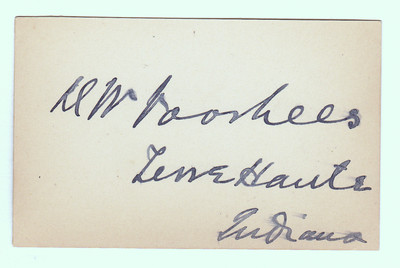 D W Voorhees
Terre Haute
Indiana